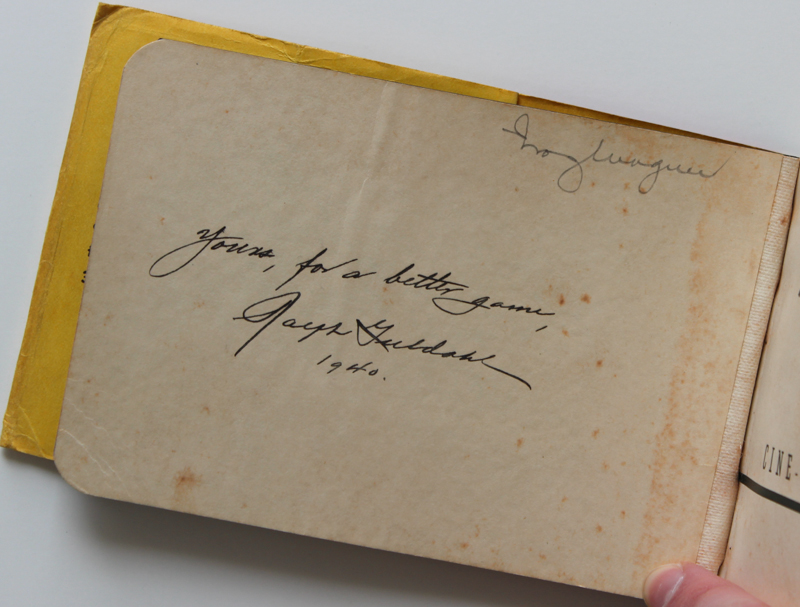 Yours, for a better game,
Ralph Guldahl
1940.
CINE-